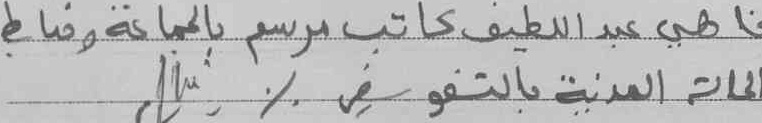 فاهي عبد اللطيف كاتب مرسم بالجماعة وضابط
الحالة المدنية بالتفويض ./.